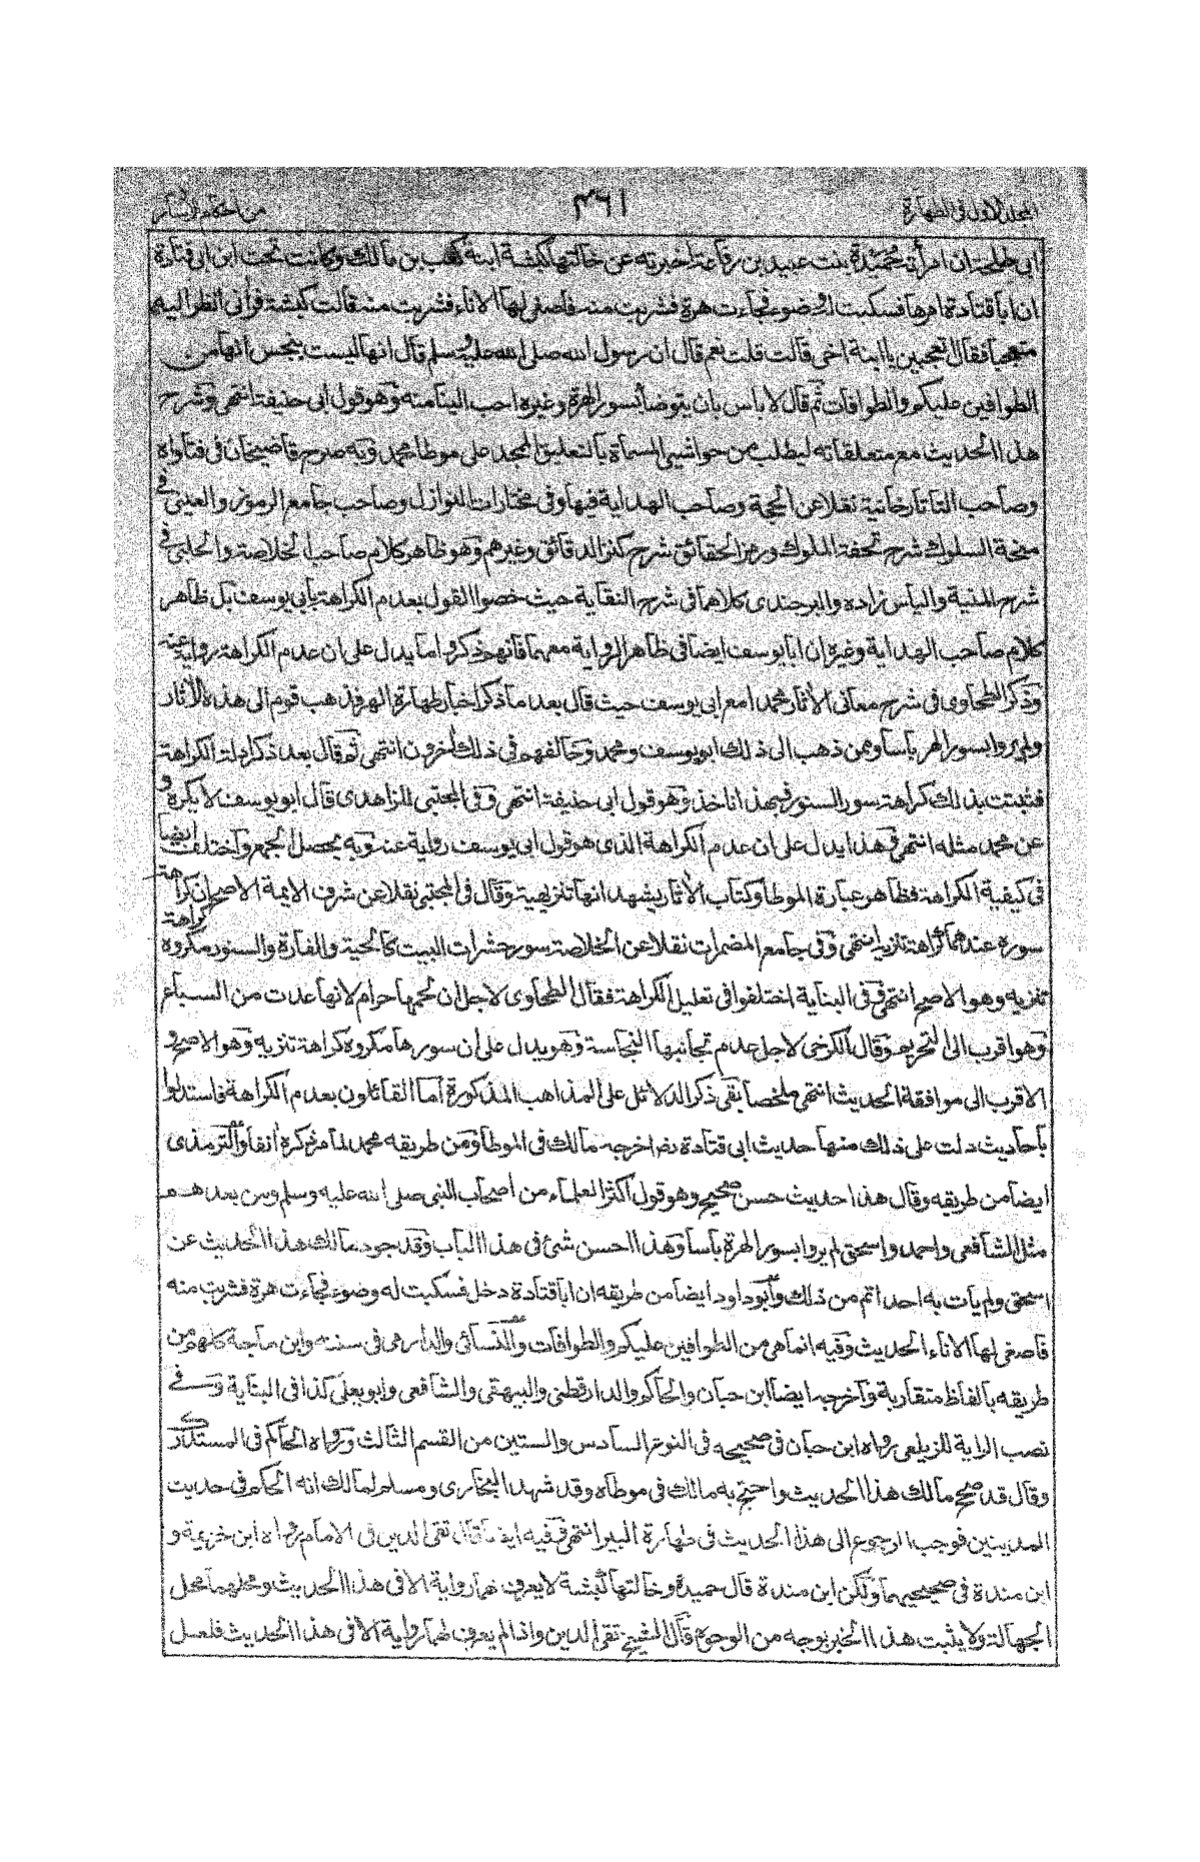 المجلد الاول فى الطهارة
٤٦١
من احكام الاسآر
ابى طلحة ان امرأته حميدة بنت عبيد بن رفاعة اخبرته عن خالتها كبشة ابنة كعب بن مالك وكانت تحت ابن ابى قتادة
ان ابا قتادة امرها فسكبت له وضوء فجاءت هرة فشربت منه فاصغى لها الاناء فشربت منه قالت كبشة فرآنى انظر اليه
متعجبا فقال اتعجبين يا ابنة اخى قالت قلت نعم قال ان رسول الله صلى الله عليه وسلم قال انها ليست بنجس انها من
الطوافين عليكم والطوافات ثم قال لا باس بان يتوضأ بسور الهرة وغيره احب الينا منه وهو قول ابى حنيفة انتهى وشرح
هذا الحديث مع متعلقاته ليطلب من حواشيى المسماة بالتعليق الممجد على موطا محمد وبه صرح قاضيخان فى فتاواه
وصاحب التاتارخانية نقلا عن الحجة وصاحب الهداية فيها وفى مختارات النوازل وصاحب جامع الرموز والعينى فى
منحة السلوك شرح تحفة الملوك ورمز الحقائق شرح كنز الدقائق وغيرهم وهو ظاهر كلام صاحب الخلاصة والحلبى فى
شرح المنية والياس زاده والبرجندى كلاهما فى شرح النقاية حيث خصوا القول بعدم الكراهة بابى يوسف بل ظاهر
كلام صاحب الهداية وغيره ان ابا يوسف ايضا فى ظاهر الرواية معهما فانهم ذكروا ما يدل على ان عدم الكراهة رواية عنه
وذكر الطحاوى فى شرح معانى الآثار محمدا مع ابى يوسف حيث قال بعد ما ذكر اخبار طهارة الهر فذهب قوم الى هذه الآثار
ولم يروا بسور الهر بأسا وممن ذهب الى ذلك ابو يوسف ومحمد وخالفهم فى ذلك آخرون انتهى ثم قال بعد ذكر ادلة الكراهة
فثبتت بذلك كراهة سور السنور فبهذا ناخذ وهو قول ابى حنيفة انتهى وفى المجتبى للزاهدى قال ابو يوسف لا يكره و
عن محمد مثله انتهى فهذا يدل على ان عدم الكراهة الذى هو قول ابى يوسف رواية عنه وبه يحصل الجمع واختلف ايضا
فى كيفية الكراهة فظاهر عبارة الموطأ وكتاب الآثار يشهد انها تنزيهية وقال فى المجتبى نقلا عن شرف الايمة الاصح ان كراهة
سوره عندهما كراهة تنزيه انتهى وفى جامع المضمرات نقلا عن الخلاصة سور حشرات البيت كالحية والفارة والسنور مكروه كراهة
تنزيه وهو الاصح انتهى وفى البناية اختلفوا فى تعليل الكراهة فقال الطحاوى لاجل ان لحمها حرام لانها عدت من السباع
وهو اقرب الى التحريم وقال الكرخى لاجل عدم تجانبها النجاسة وهو يدل على ان سورها مكروه كراهة تنزيه وهو الاصح و
الاقرب الى موافقة الحديث انتهى ملخصا بقى ذكر الدلائل على المذاهب المذكورة اما القائلون بعدم الكراهة فاستدلوا
باحاديث دلت على ذلك منها حديث ابى قتادة رض اخرجه مالك فى الموطا ومن طريقه محمد لما مر ذكره آنفا والترمذى
ايضا من طريقه وقال هذا حديث حسن صحيح وهو قول اكثر العلماء من اصحاب النبى صلى الله عليه وسلم ومن بعدهم
مثل الشافعى واحمد واسحق لم يروا بسور الهرة بأسا وهذا احسن شئ فى هذا الباب وقد جود مالك هذا الحديث عن
اسحق ولم يأت به احد اتم من ذلك وابو داود ايضا من طريقه ان ابا قتادة دخل فسكبت له وضوء فجاءت هرة فشربت منه
فاصغى لها الاناء الحديث وفيه انما هى من الطوافين عليكم والطوافات والنسائى والدارمى فى سننه وابن ماجة كلهم من
طريقه بالفاظ متقاربة واخرجه ايضا ابن حبان والحاكم والدارقطنى والبيهقى والشافعى وابو يعلى كذا فى البناية وفى
نصب الراية للزيلعى رواه ابن حبان فى صحيحه فى النوع السادس والستين من القسم الثالث ورواه الحاكم فى المستدرك
وقال قد صحح مالك هذا الحديث واحتج به مالك فى موطاه وقد شهد البخارى ومسلم لمالك انه الحكم فى حديث
المدينين فوجب الرجوع الى هذا الحديث فى طهارة الهر انتهى وفيه ايضا قال تقى الدين فى الامام رواه ابن خزيمة و
ابن مندة فى صحيحيهما ولكن ابن مندة قال حميدة وخالتها كبشة لا يعرف لهما رواية الا فى هذا الحديث ومحلهما محل
الجهالة ولا يثبت هذا الخبر بوجه من الوجوه قال الشيخ تقى الدين واذا لم يعرف لهما رواية الا فى هذا الحديث فلعل